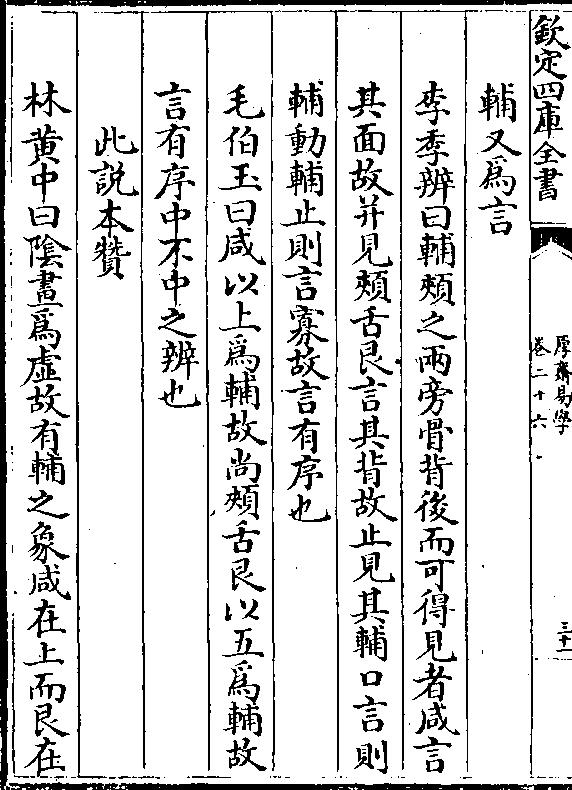 欽定四庫全書
厚齋易學
卷二十六
三十一
輔又爲言
李季辨曰輔頰之兩旁骨背後而可得見者咸言
其面故并見頰舌艮言其背故止見其輔口言則
輔動輔止則言寡故言有序也
毛伯玉曰咸以上爲輔故尚頰舌艮以五爲輔故
言有序中不中之辨也
此說本贊
林黄中曰陰畫爲虛故有輔之象咸在上而艮在